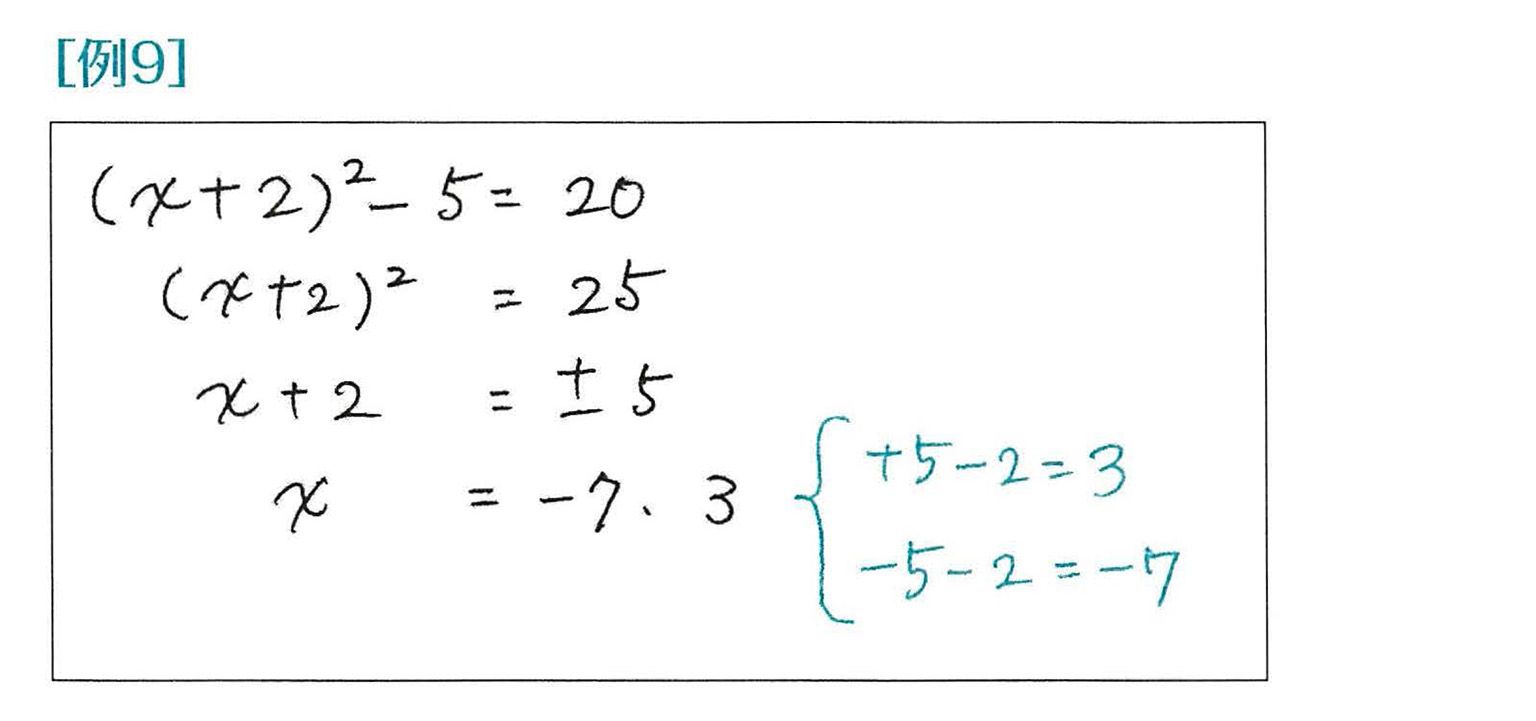 [例9]
(x+2)²-5=20
(x+2)²=25
x+2=±5
x=-7、3
+5-2=3
-5-2=-7